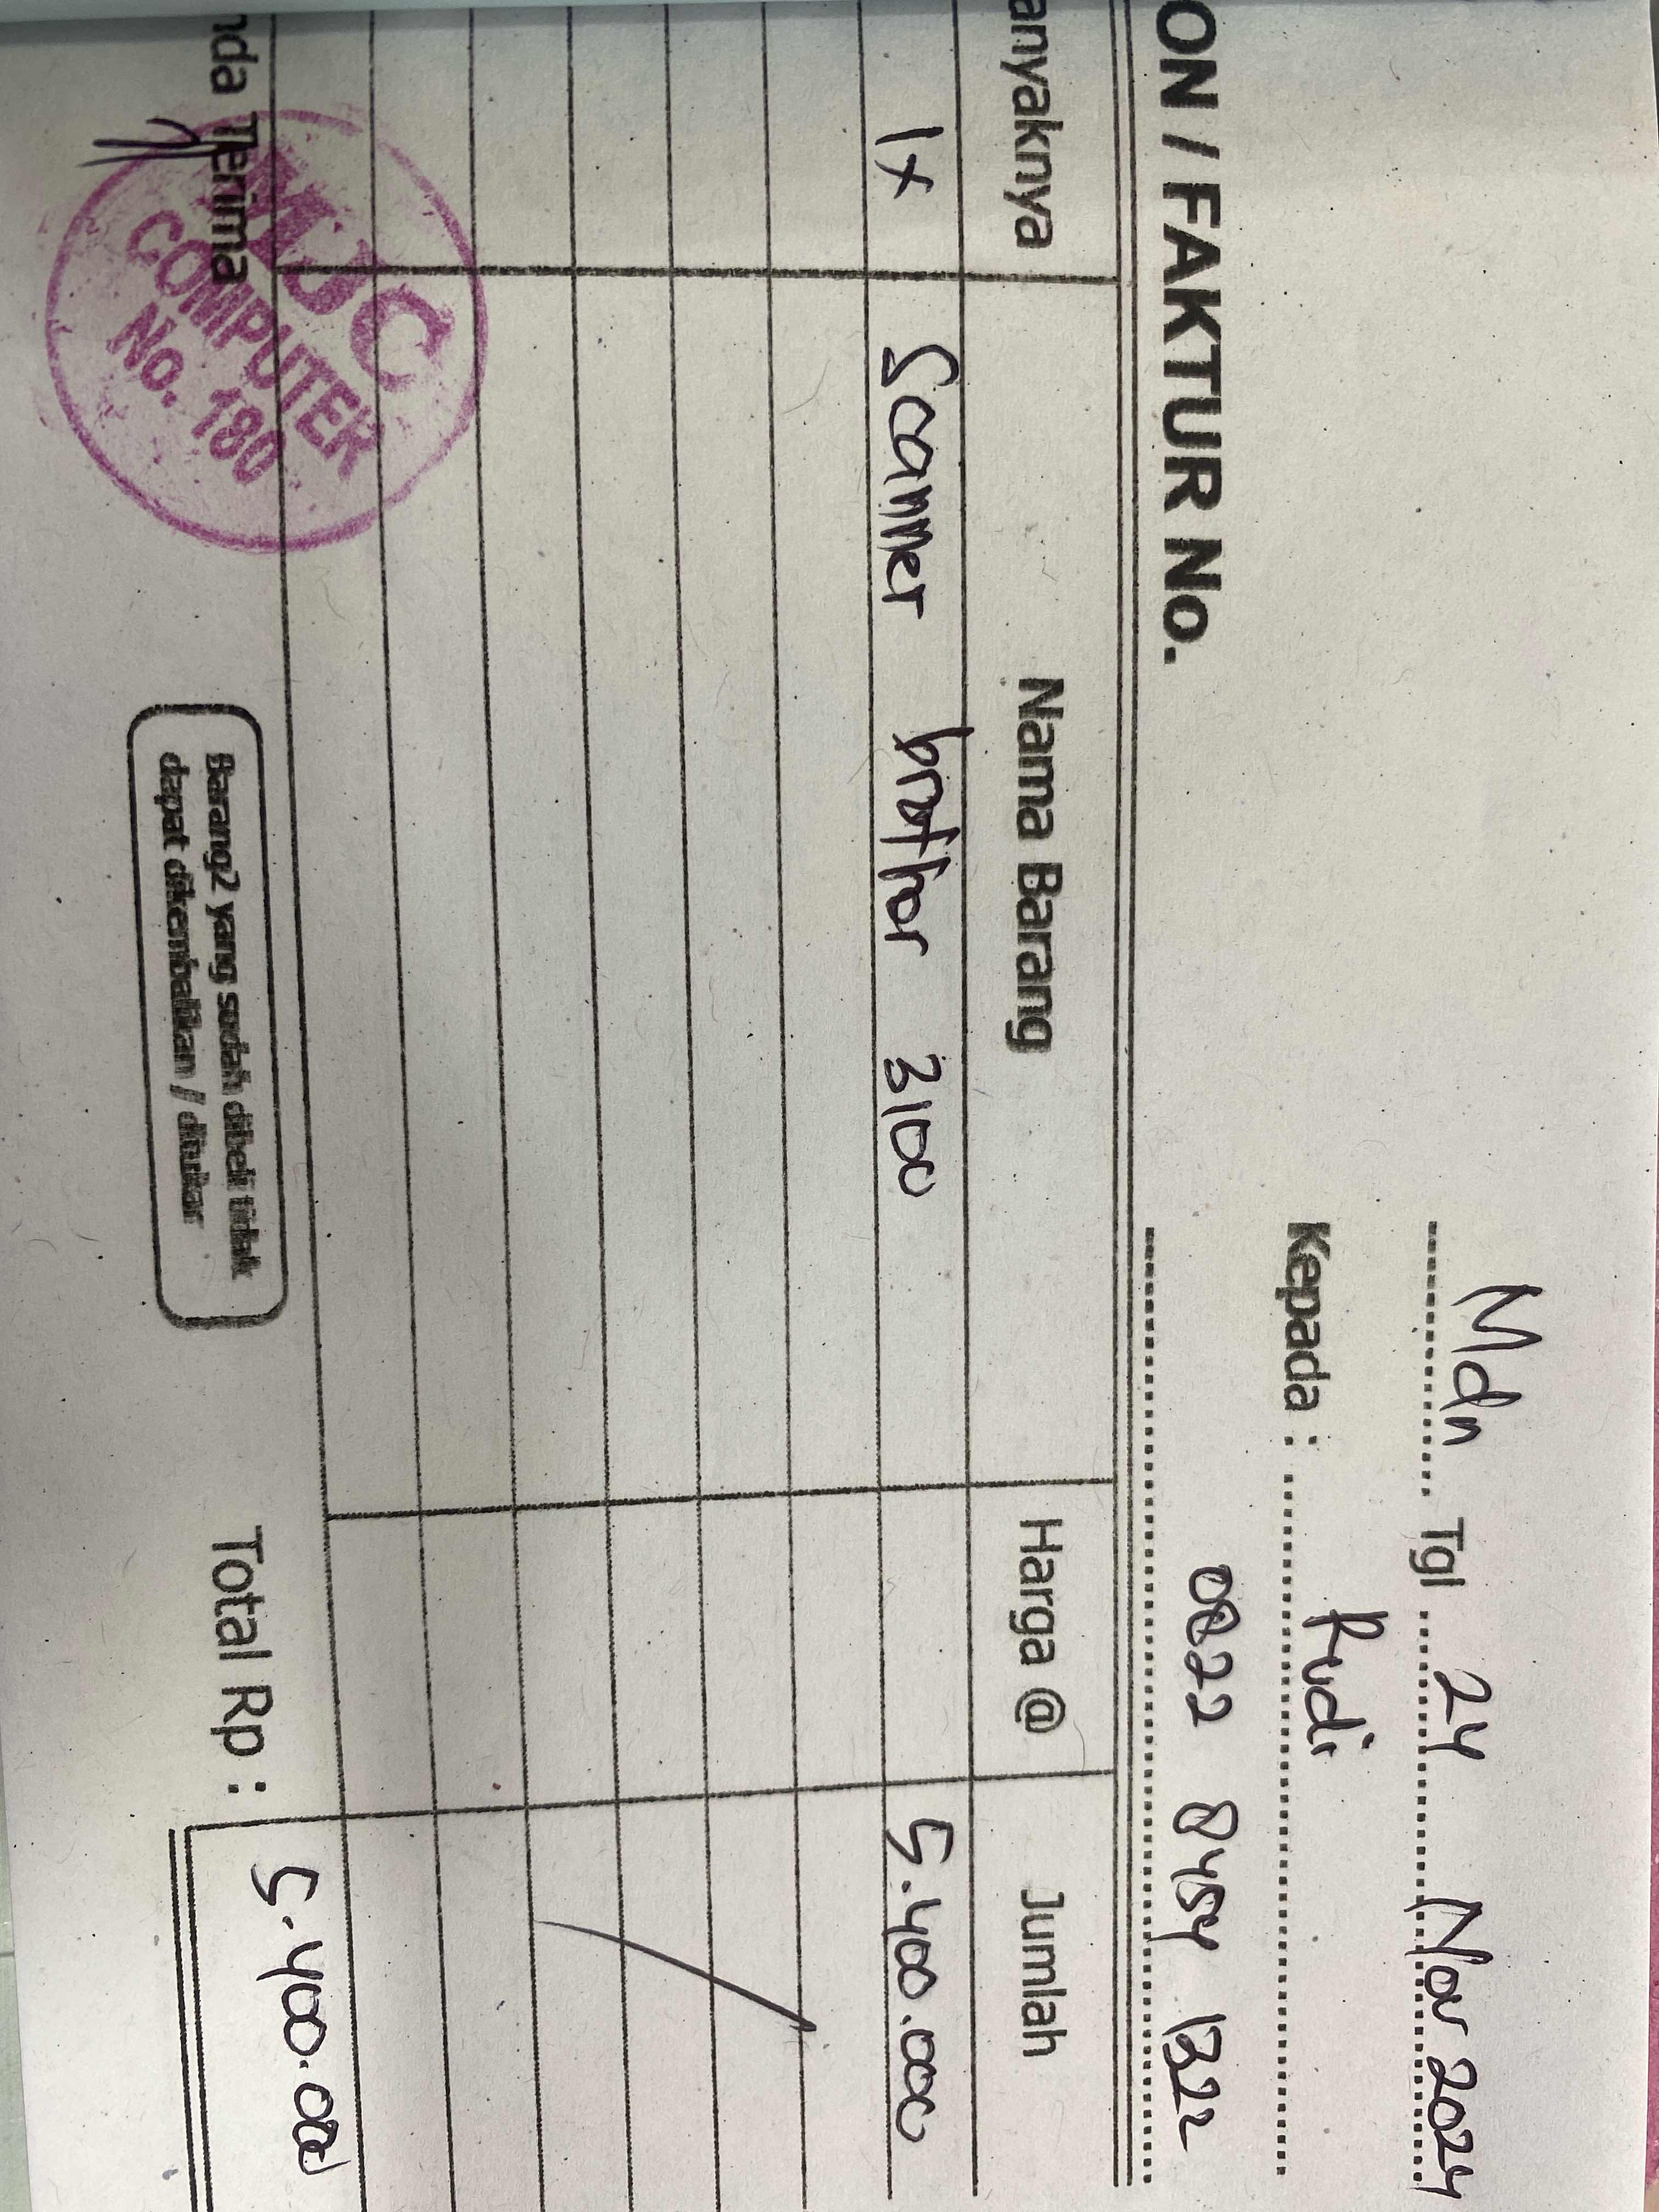 Mdn Tgl 24 Nov 2024
Kepada : Rudi
0822 8454 1322
ON / FAKTUR No.
anyaknya Nama Barang Harga @ Jumlah
1x Scanner brother 3100 5.400.000
nda Terima
MJC
COMPUTER
No. 180
Barang2 yang sudah dibeli tidak
dapat dikembalikan / ditukar
Total Rp : 5.400.000